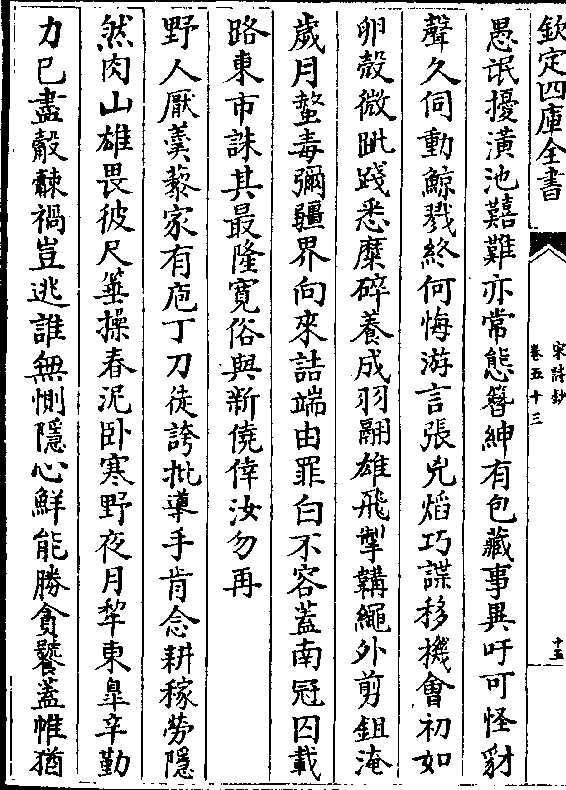 欽定四庫全書
宋詩鈔
卷五十三
十五
愚氓擾潢池嘉難亦常態簪紳有包藏事異吁可怪豺
聲久伺動鯨戮終何悔游言張兇熖巧諜移機會初如
卵殼微眦踐悉糜碎養成羽翮雄飛掣韝繩外剪鉏淹
歲月螫毒彌疆界向來詰端由罪白不容蓋南冠囚載
路東市誅其最隆寛俗與新僥倖汝勿再
野人厭羮藜家有庖丁刀徒誇批導手肯念耕稼勞隱
然肉山雄畏彼尺箠操春泥卧寒野夜月犂東臯辛勤
力已盡觳觫禍豈逃誰無惻隠心鮮能勝貪饕蓋帷猶